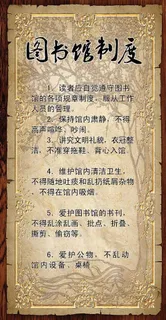 图书馆制度
1、读者应自觉遵守图书
馆的各项规章制度，服从工作
人员的管理。
2、保持馆内肃静，不得
高声喧哗、吵闹。
3、讲究文明礼貌，衣冠整
洁，不准穿拖鞋、背心入馆。
4、维护馆内清洁卫生，
不得随地吐痰和乱扔纸屑杂物
，不得在馆内吸烟。
5、爱护图书馆的书刊，
不得乱涂乱画、批点、折叠、
撕剪、偷窃等。
6、爱护公物，不乱动
馆内设备、桌椅。